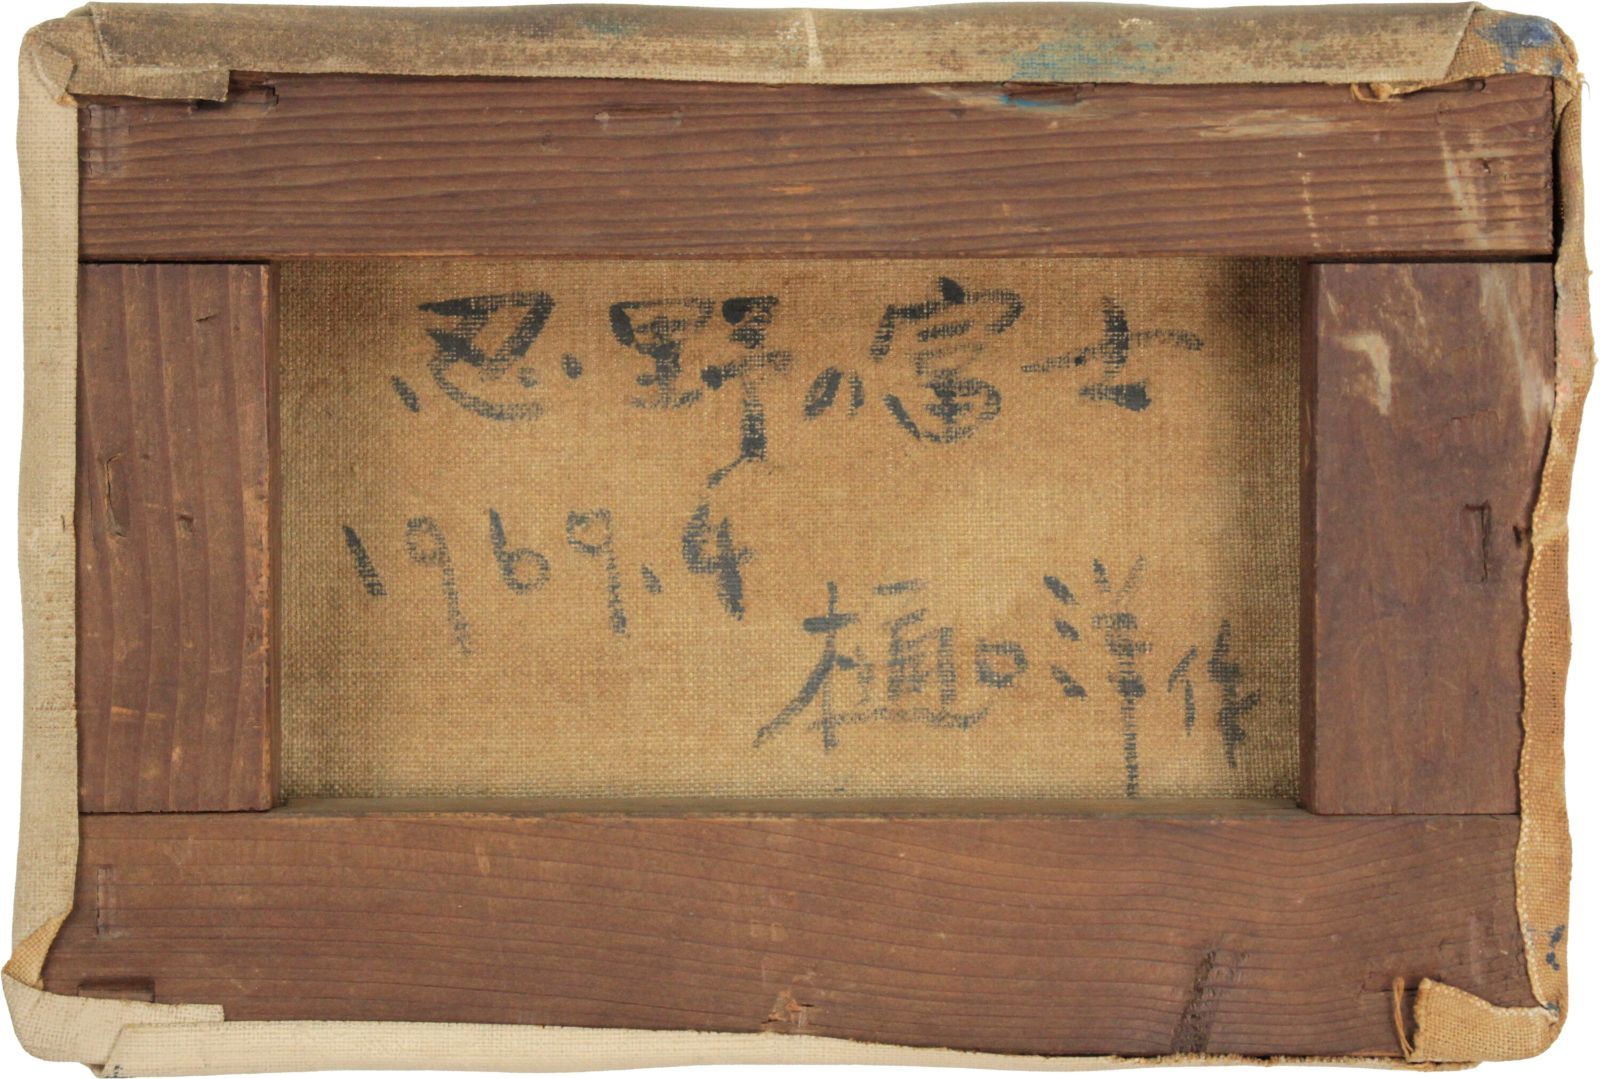 忍野の富士
1969.4
樋口洋作